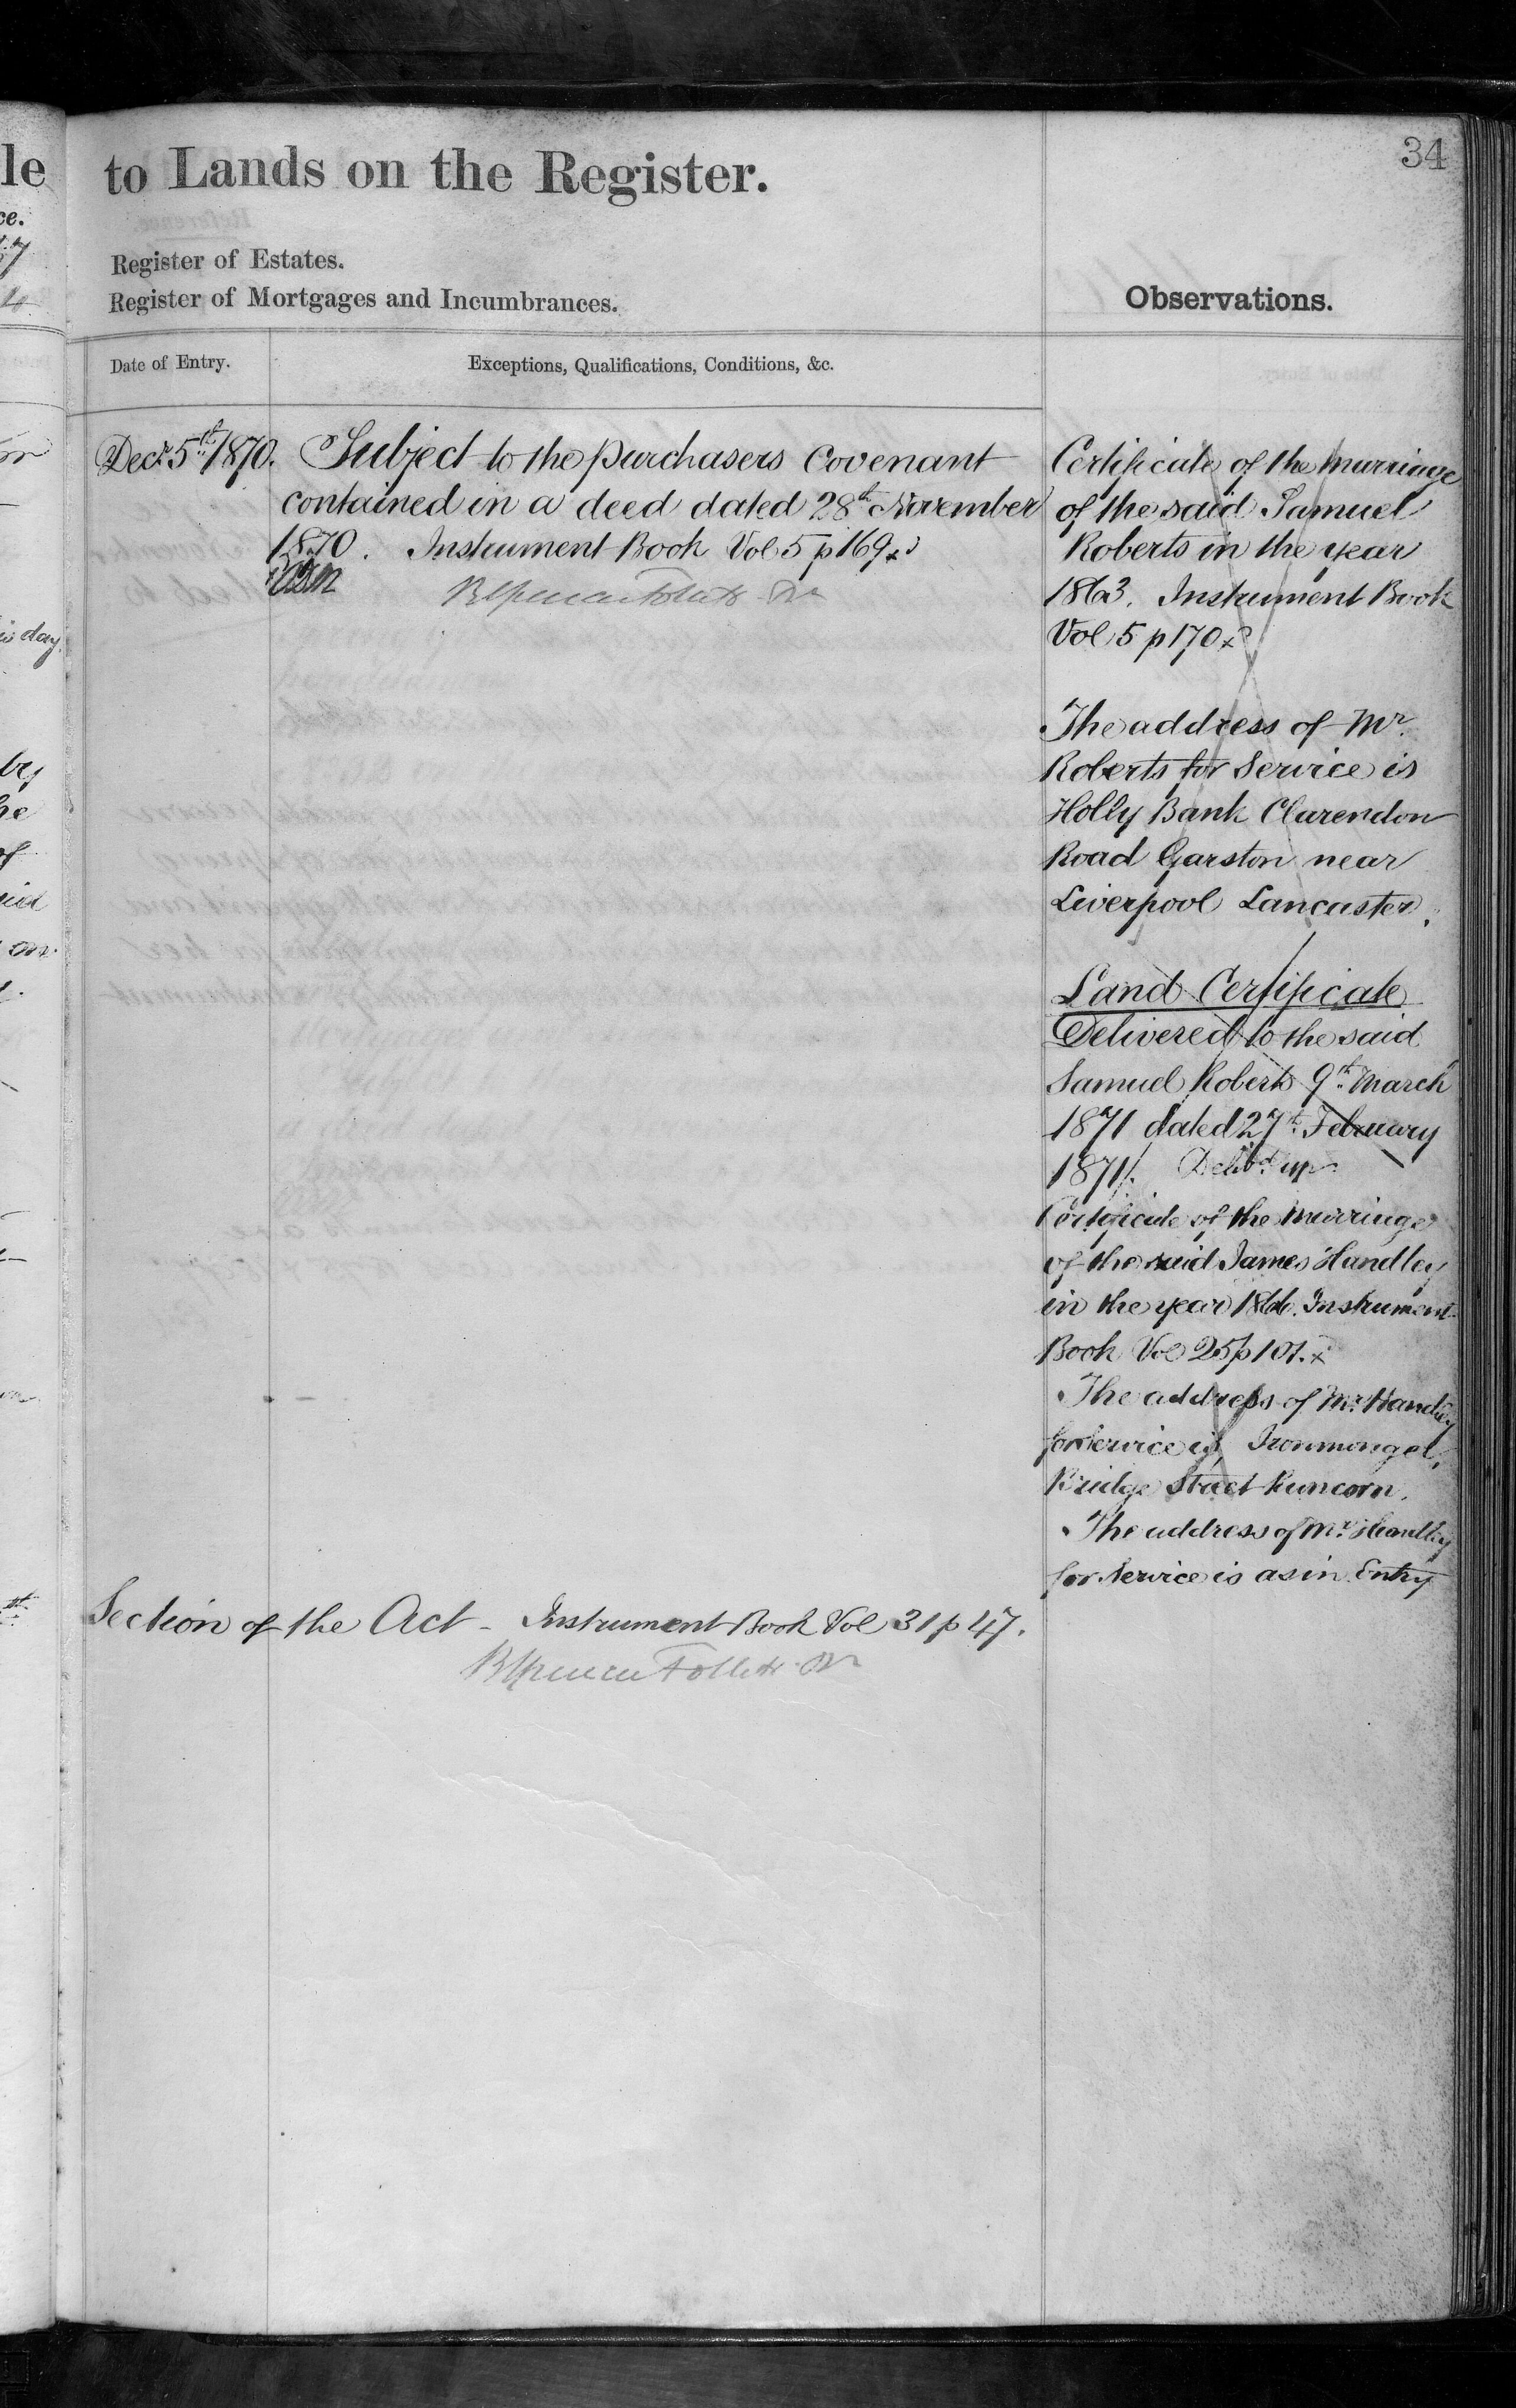 34
to Lands on the Register.
Register of Estates.
Register of Mortgages and Incumbrances.
Observations.
Date of Entry.
Exceptions, Qualifications, Conditions, &c.
Decr. 5th 1870. Subject to the purchasers Covenant
contained in a deed dated 28th November
1870. Instrument Book Vol 5 p 169 x
B Spencer Follett Rr
Certificate of the marriage
of the said Samuel
Roberts in the year
1863. Instrument Book
Vol 5 p 170 x
The address of Mr.
Roberts for Service is
Holly Bank Clarendon
Road Garston near
Liverpool Lancaster.
Land Certificate
Delivered to the said
Samuel Roberts 9th March
1871 dated 27th February
1871. Delivd. up
Certificate of the marriage
of the said James Handley
in the year 1866. Instrument
Book Vol 25 p 101. x
The address of Mr. Handley
for Service is, Ironmonger,
Bridge Street Runcorn.
The address of Mr. Handley
for Service is as in Entry
Section of the Act - Instrument Book Vol 31 p 47.
B Spencer Follett Rr